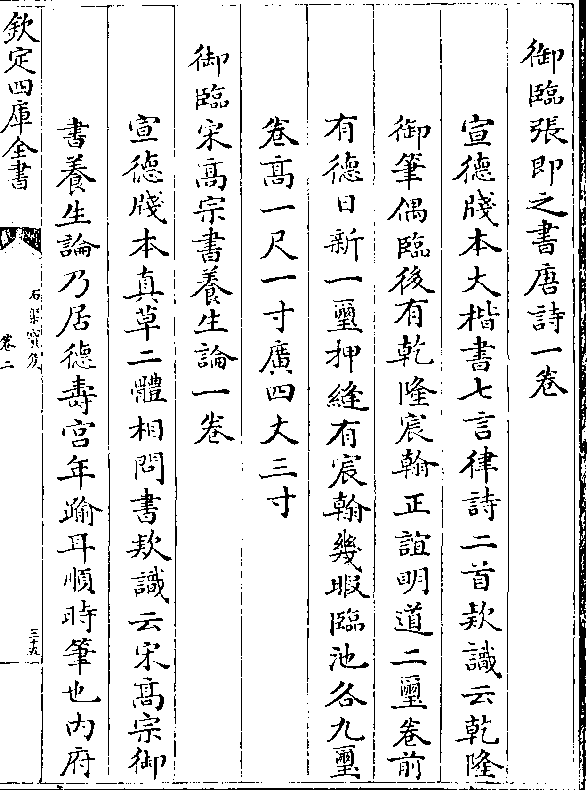 御臨張即之書唐詩一卷
宣德牋本大楷書七言律詩二首欵識云乾隆
御筆偶臨後有乾隆宸翰正誼明道二璽卷前
有德日新一璽押縫有宸翰幾暇臨池各九璽
卷高一尺一寸廣四丈三寸
御臨宋髙宗書養生論一卷
宣德牋本真草二體相間書欵識云宋髙宗御
書養生論乃居德壽宫年踰耳順時筆也内府
欽定四庫全書
石渠寶笈
卷二
三十五